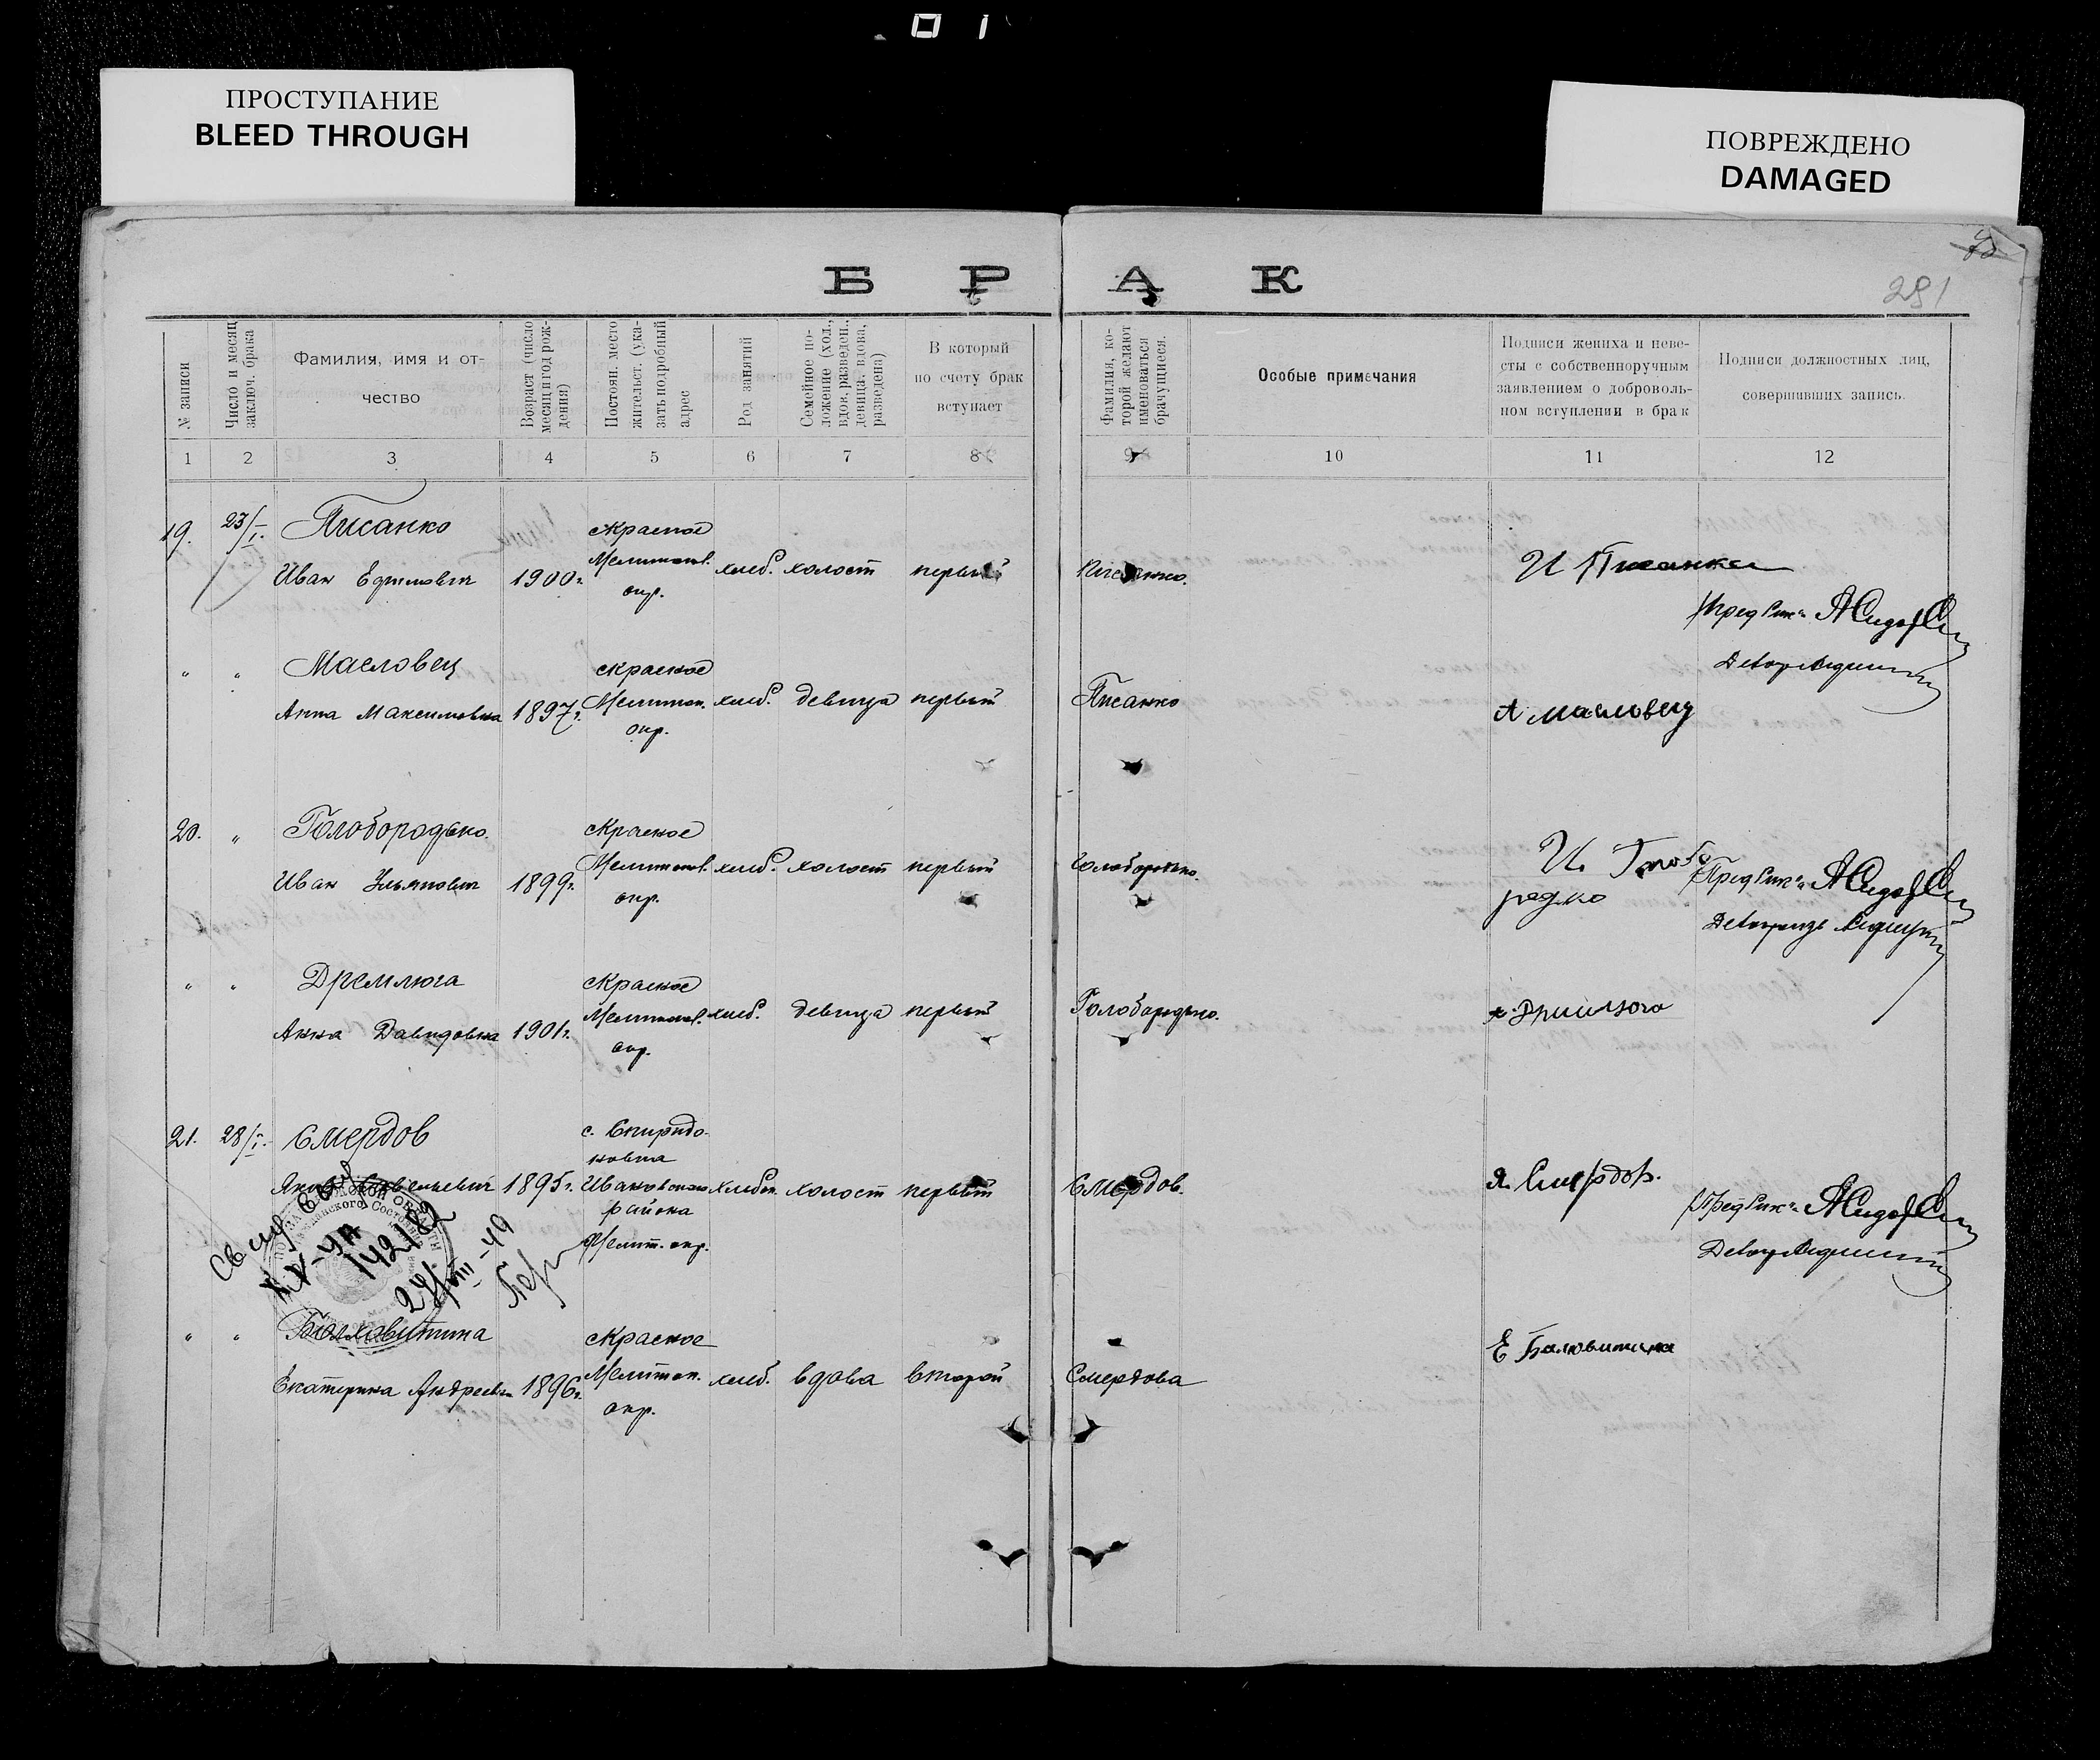 ПРОСТУПАНИЕ
BLEED THROUGH
ПОВРЕЖДЕНО
DAMAGED
281
Б Р А К
№ записи
Число и месяц
заключ. брака
Фамилия, имя и от-
чество
Возраст (число
месяц и год рож-
дения)
Постоян. место
жительст. (ука-
зать подробный
адрес
Род занятий
Семейное по-
ложение (хол.,
вдов, разведен.,
девица, вдова,
разведена)
В который
по счету брак
вступает
Фамилия, ко-
торой желают
именоваться
брачущиеся.
Особые примечания
Подписи жениха и неве-
сты с собственноручным
заявлением о доброволь-
ном вступлении в брак
Подписи должностных лиц,
совершивших запись.
1 2 3 4 5 6 7 8 9 10 11 12
19. 23/I. Писанко
Иван Ефимович 1900г. с Красное Мелитопол. окр. хлеб. холост первый Писанко. И Писанко
" " Масловец
Анна Максимовна 1897г. с Красное Мелитоп. окр. хлеб. девица первый Писанко А Масловец
20. " Голобородько.
Иван Ульянович 1899г. с Красное Мелитопол. окр. хлеб. холост первый Голобородько. И. Голобо
редко
" " Дремлюга
Анна Давидовна 1901г. с Красное Мелитопол. окр. хлеб. девица первый Голобородько.
21. 28/I. Смердов
1895г. с. Спиридо-
новка
Ивановского района
Мелит. окр. хлебоп. холост первый Смердов. Я. Смердов.
142182
28/VIII-49
" " Болховитина
Екатерина Андреевн 1896г. с Красное Мелитоп. окр. хлеб. вдова второй Смердова